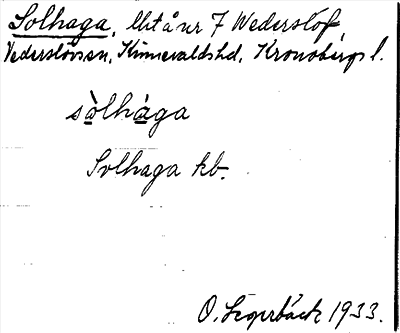 Solhaga, lht å nr 7 Wederslöf,
Vederslövs sn, Kinnevalds hd, Kronobergs l.
sòlhàga
Solhaga kb.
O. Segerbäck 1933.